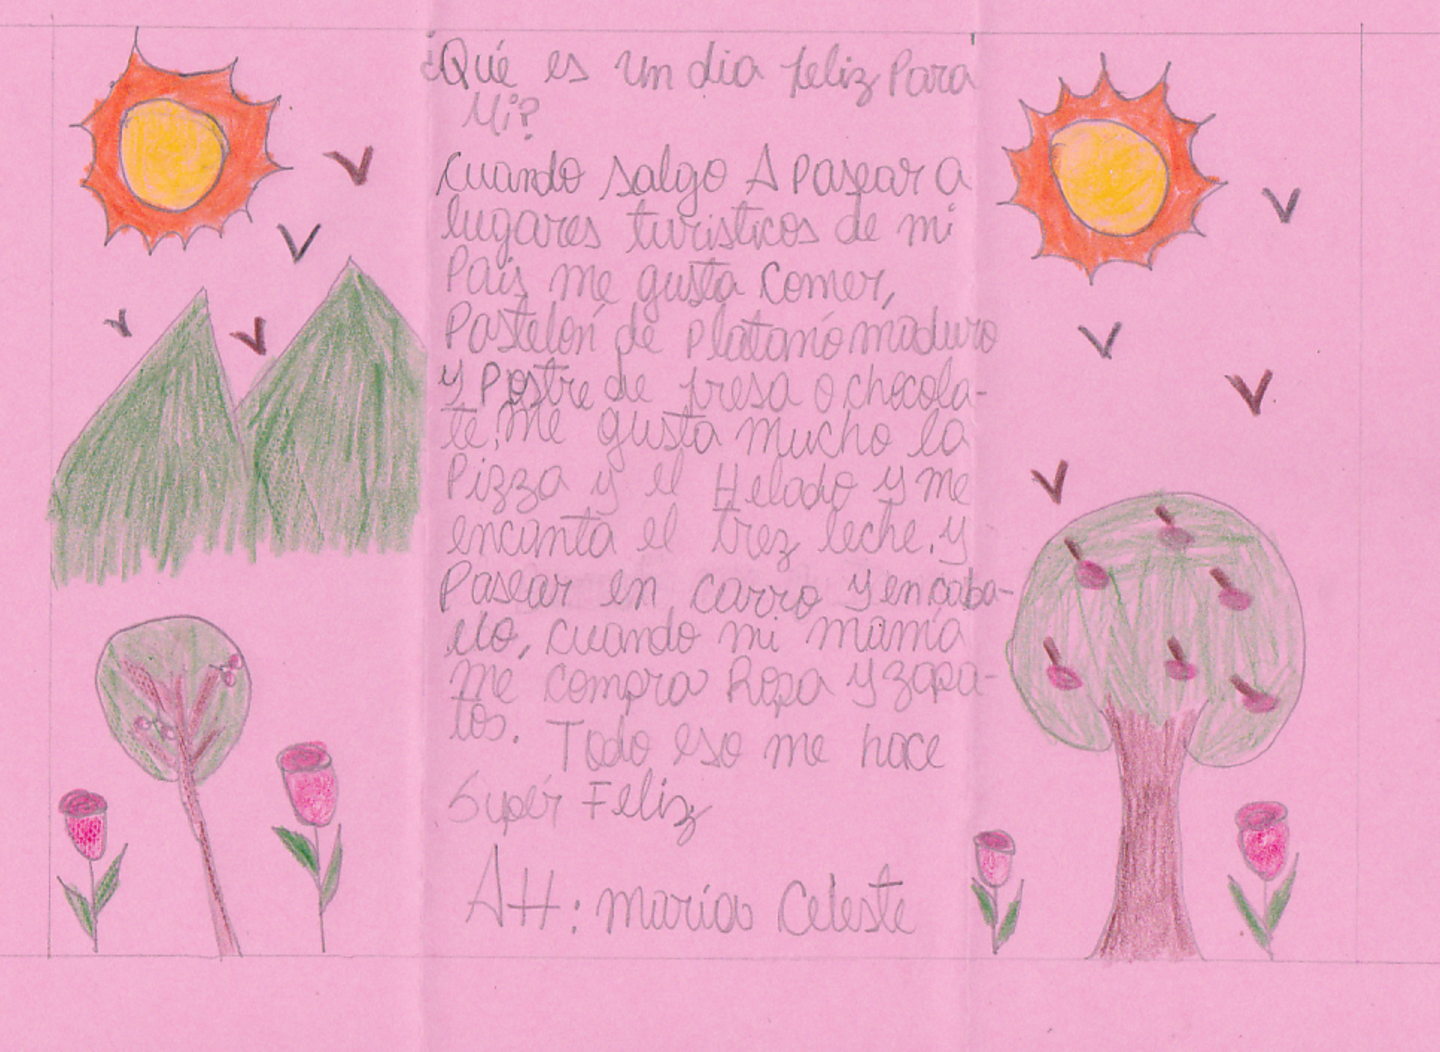 ¿Qué es un dia feliz Para
Mi?
Cuando salgo A Pasear a
lugares turisticos de mi
Pais me gusta Comer,
Pastelón de platano maduro
y Postre de fresa o chocola-
te. Me gusta mucho la
Pizza y el Helado y me
encanta el trez leche. y
Pasear en carro y en caba-
llo, cuando mi mamá
me compra Ropa y zapa-
tos. Todo eso me hace
Supér Feliz
Att: maria Celeste